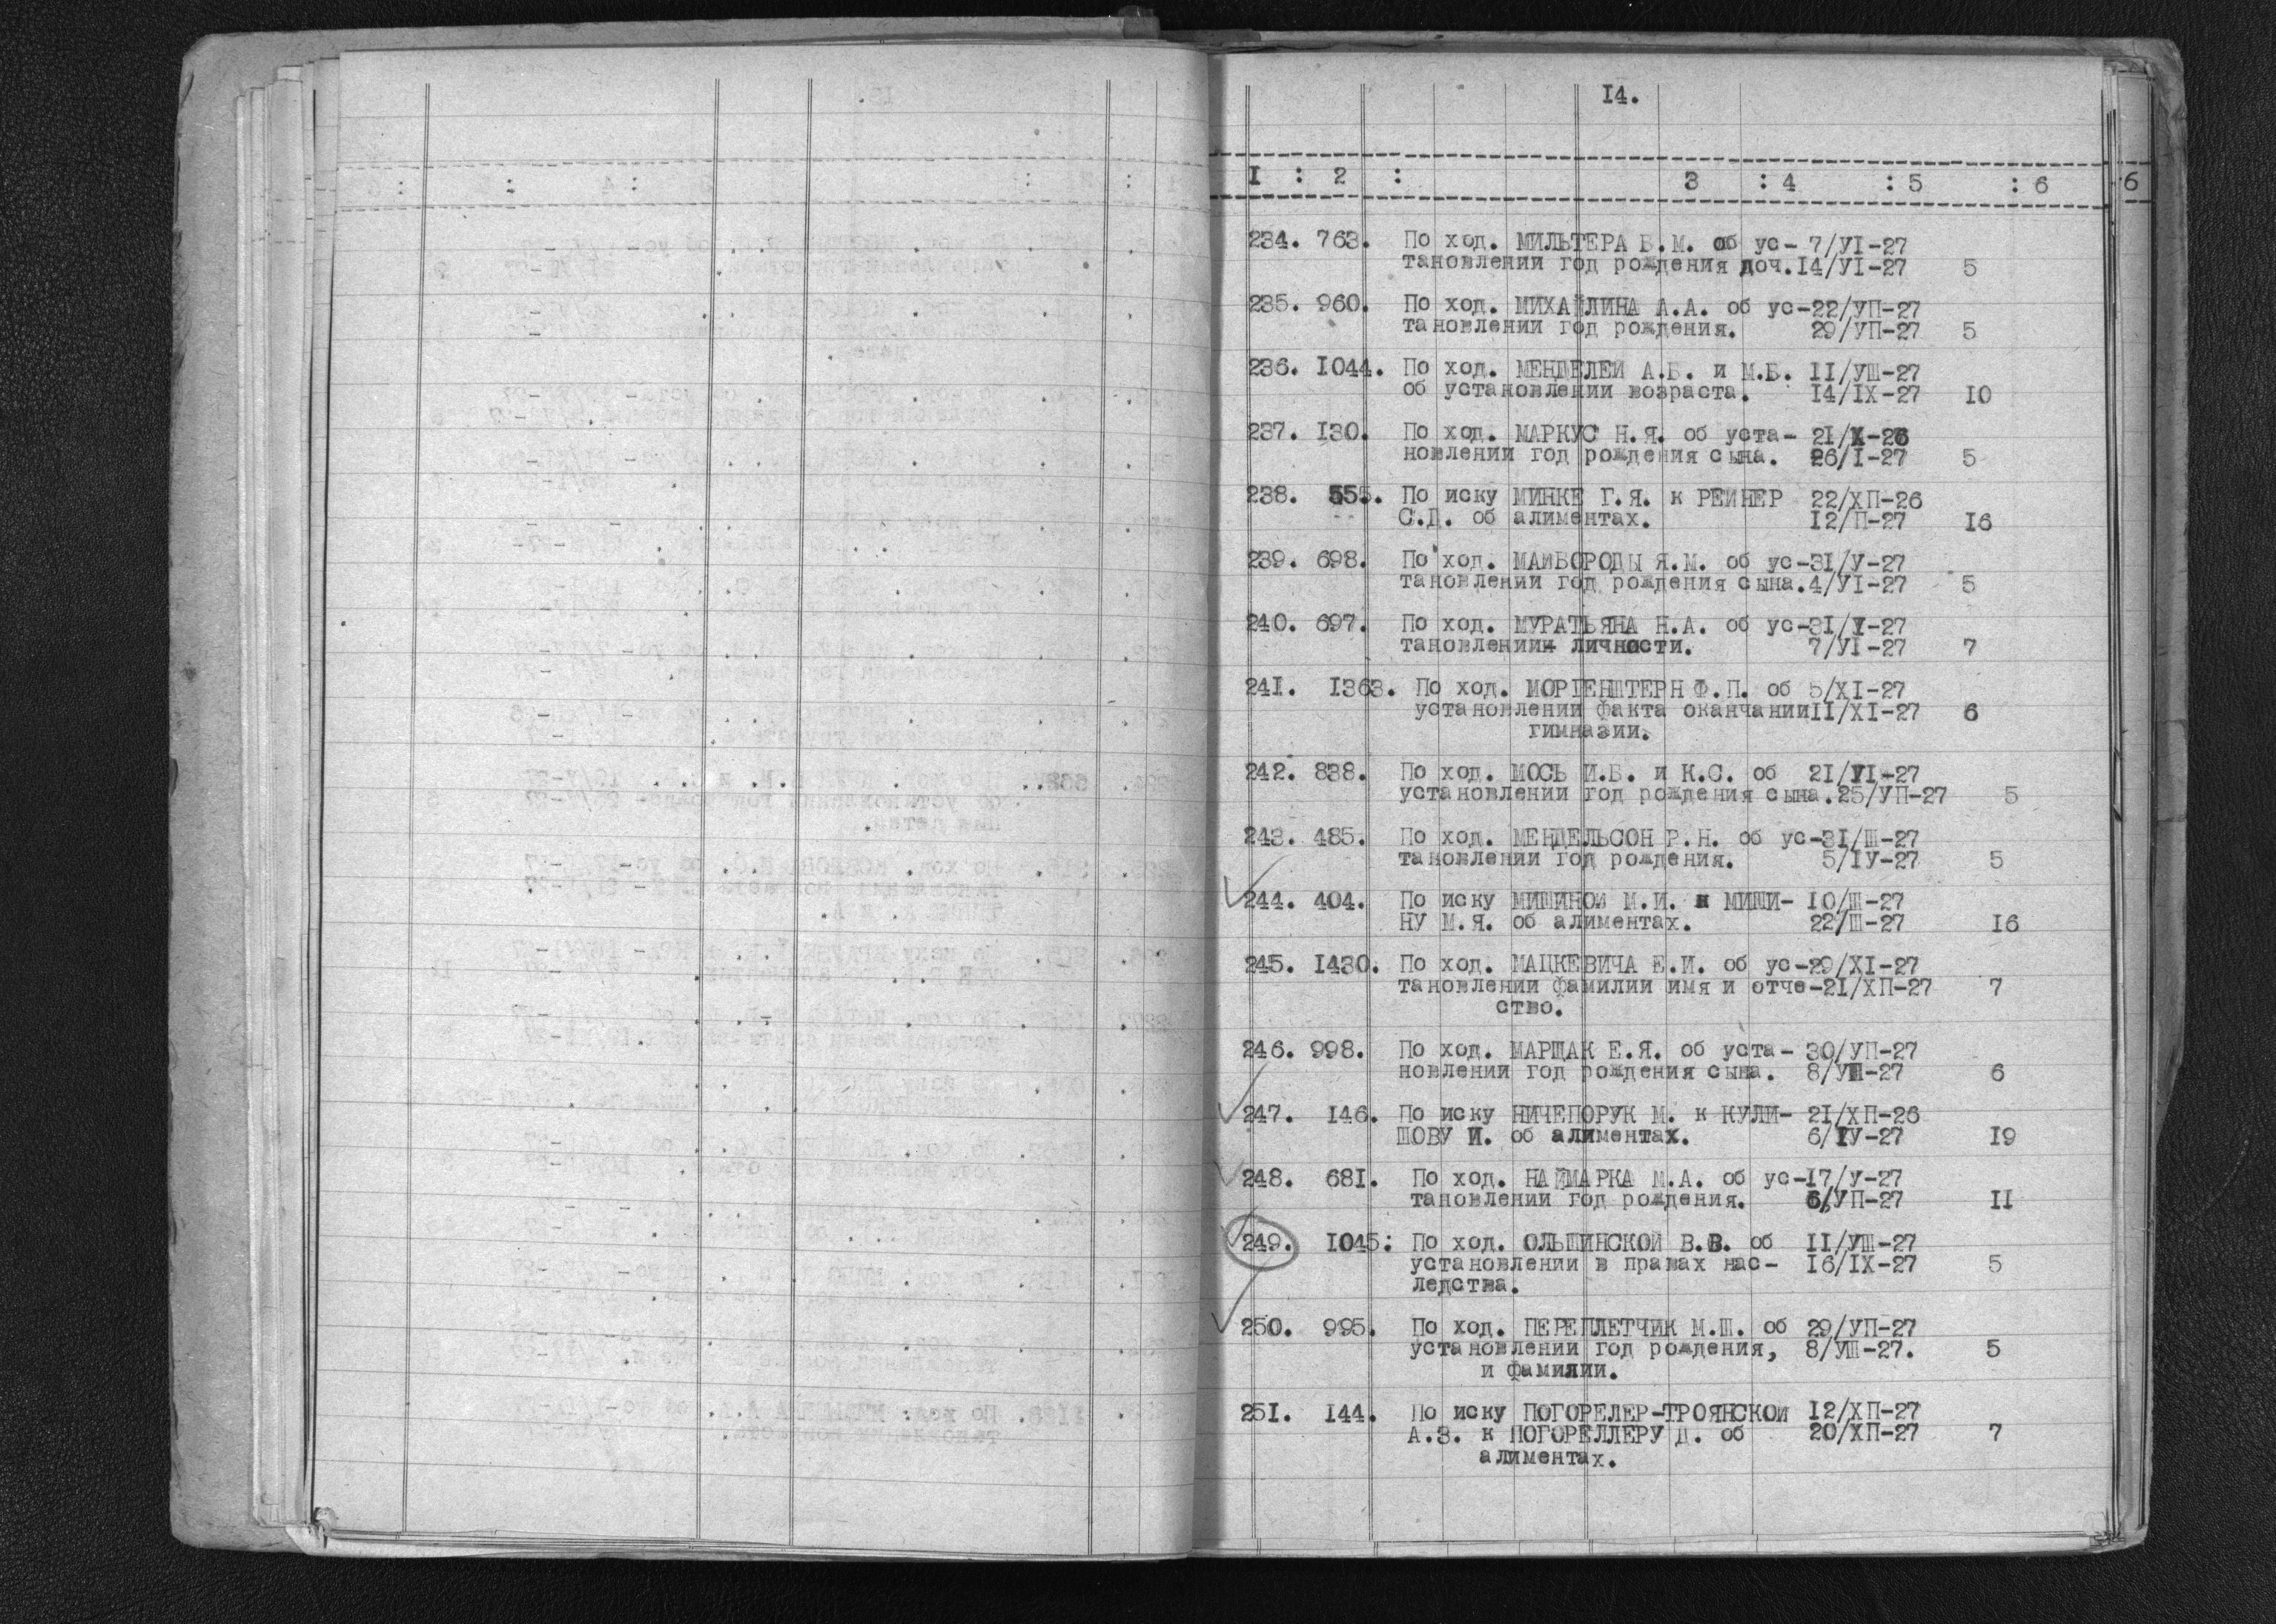 14.
1 : 2 : 3 : 4 : 5 : 6
6
234. 763. По ход. МИЛЬТЕРА Б.М. об ус- 7/УI-27
тановлении год рождения доч. 14/УI-27 5
235. 960. По ход. МИХАЙЛИНА А.А. об ус-22/УП-27
тановлении год рождения. 29/УП-27 5
236. 1044. По ход. МЕНДЕЛЕЙ А.Б. и М.Б. 11/УШ-27
об установлении возраста. 14/IX-27 10
237. 130. По ход. МАРКУС Н.Я. об уста- 21/X-26
новлении год рождения сына. 26/I-27 5
238. 555. По иску МИНКЕ Г.Я. к РЕЙНЕР 22/ХП-26
С.Д. об алиментах. 12/П-27 16
239. 698. По ход. МАЙБОРОДЫ Я.М. об ус-31/У-27
тановлении год рождения сына. 4/УI-27 5
240. 697. По ход. МУРАТЬЯНА Н.А. об ус-31/У-27
тановлении личности. 7/УI-27 7
241. 1363. По ход. МОРГЕНШТЕРН Ф.П. об 5/XI-27
установлении факта оканчании 11/XI-27 6
гимназии.
242. 838. По ход. МОСЬ И.Б. и К.С. об 21/УI-27
установлении год рождения сына. 25/УП-27 5
243. 485. По ход. МЕНДЕЛЬСОН Р.Н. об ус-31/Ш-27
тановлении год рождения. 5/IУ-27 5
244. 404. По иску МИШИНОЙ М.И. к МИШИ- 10/Ш-27
НУ М.Я. об алиментах. 22/Ш-27 16
245. 1430. По ход. МАЦКЕВИЧА Е.И. об ус-29/XI-27
тановлении фамилии имя и отче-21/ХП-27 7
ство.
246. 998. По ход. МАРЩАК Е.Я. об уста- 30/УП-27
новлении год рождения сына. 8/УШ-27 6
247. 146. По иску НИЧЕПОРУК М. к КУЛИ- 21/ХП-26
ШОВУ И. об алиментах. 6/IУ-27 19
248. 681. По ход. НАЙМАРКА М.А. об ус-17/У-27
тановлении год рождения. 6/УП-27 11
249. 1045: По ход. ОЛЬШИНСКОЙ В.В. об 11/УШ-27
установлении в правах нас- 16/IX-27 5
ледства.
250. 995. По ход. ПЕРЕПЛЕТЧИК М.Ш. об 29/УП-27
установлении год рождения, 8/УШ-27. 5
и фамилии.
251. 144. По иску ПОГОРЕЛЕР-ТРОЯНСКОЙ 12/ХП-27
А.З. к ПОГОРЕЛЛЕРУ Д. об 20/ХП-27 7
алиментах.